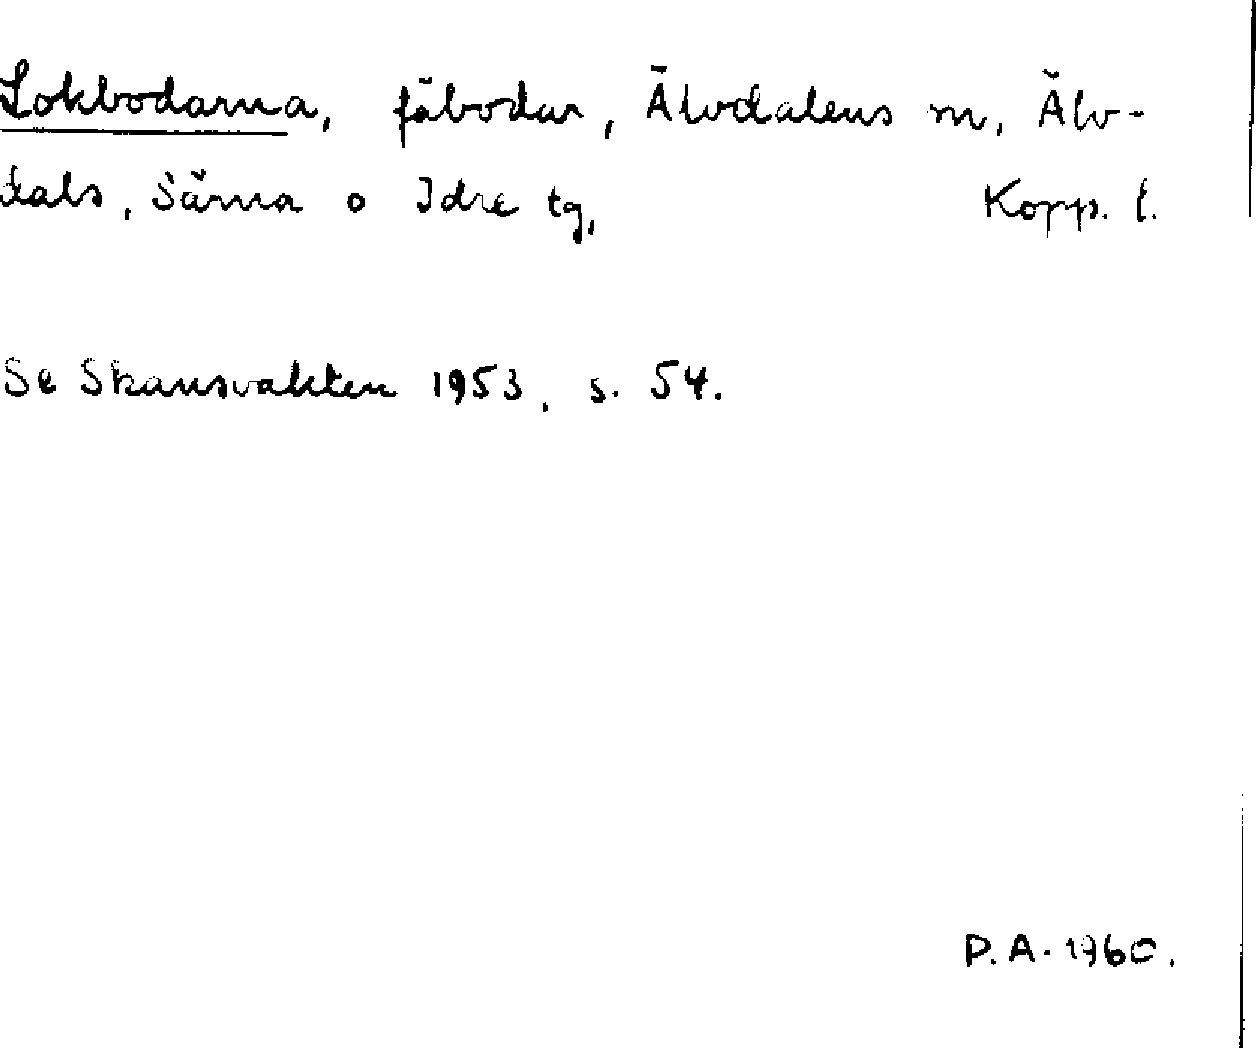 Lokbodarna, fäbodar, Älvdalens m, Älv-
dals, Särna o Idre tg, Kopp. l.
Se Skansvakten 1953, s. 54.
P.A. 1960.